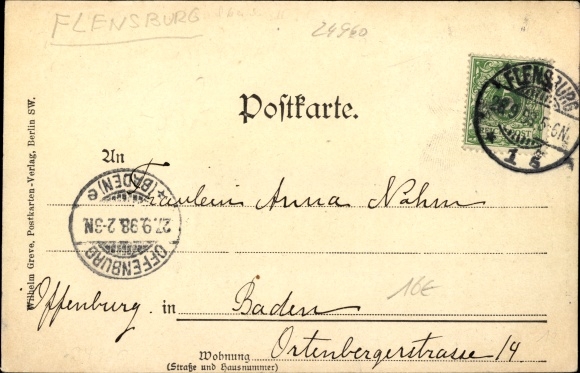 FLENSBURG
24960
FLENSBURG
1
Postkarte.
An
Fräulein Anna Nohm
OFFENBURG
27.9.98. 2-3N.
(BADEN) e
Offenburg. in Baden
16€
Ortenbergerstrasse 14
Wohnung
(Straße und Hausnummer)
Wilhelm Greve, Postkarten-Verlag, Berlin SW.